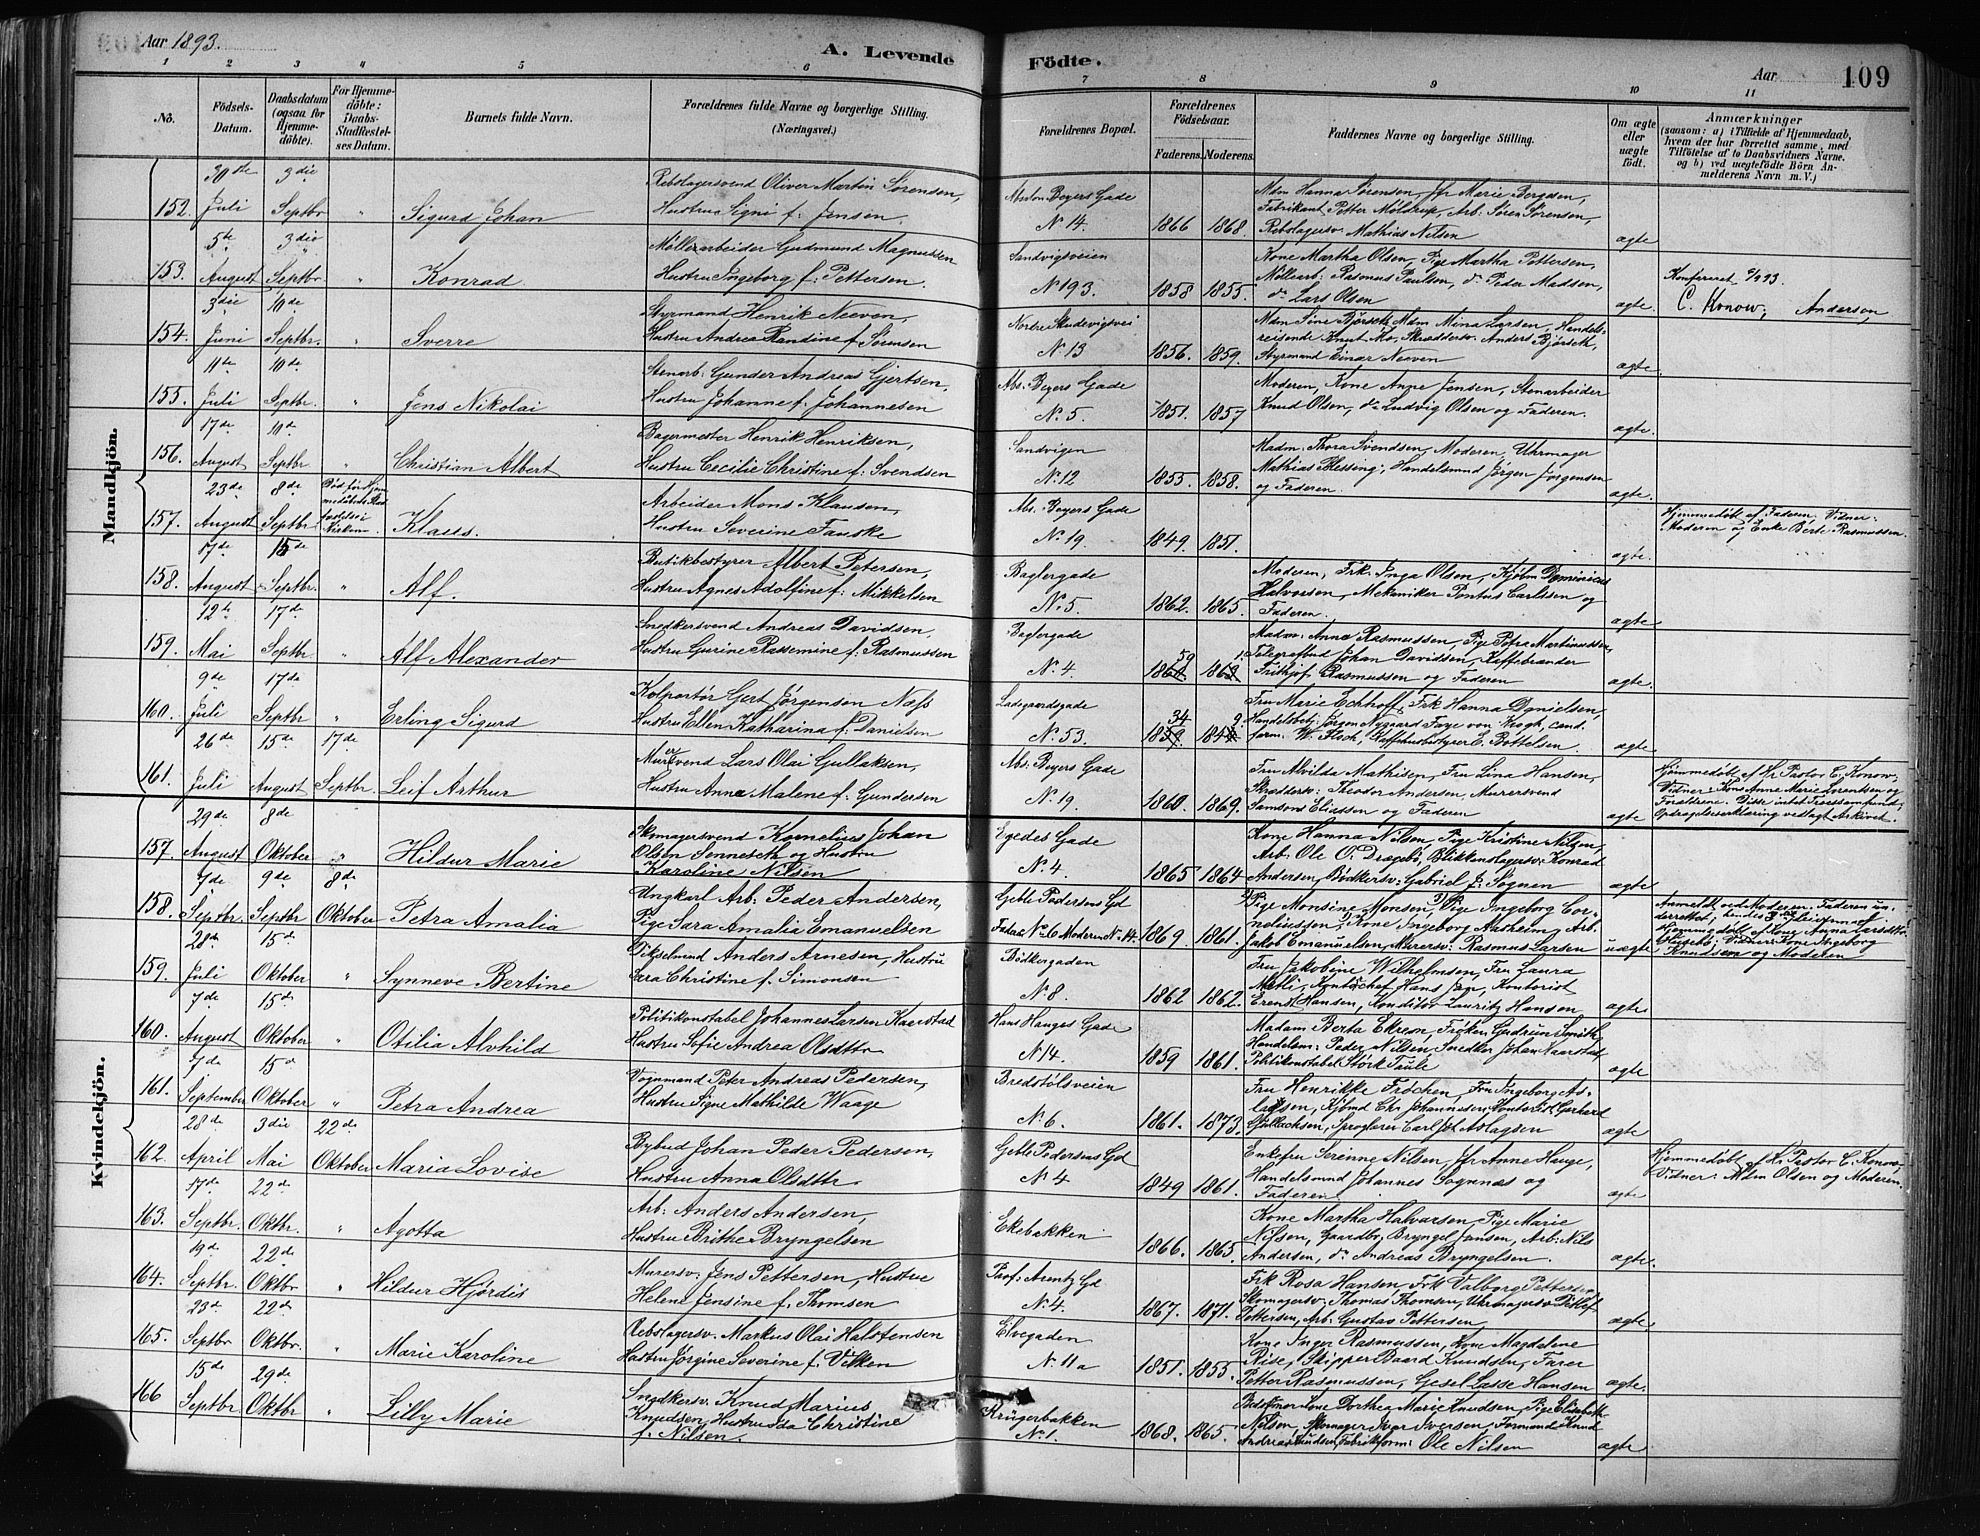 Aar 1893.
A. Levende Födte.
Aar
109
1 2 3 4 5 6 7 8 9 10 11
No. Födsels-Datum. Daabsdatum (ogsaa for Hjemmedöbte). For Hjemmedöbte: Daabs-Stadfæstelses Datum. Barnets fulde Navn. Forældrenes fulde Navne og borgerlige Stilling. (Næringsvei.)
Forældrenes Bopæl. Forældrenes Födselsaar. Faderens. Moderens. Faddernes Navne og borgerlige Stilling. Om ægte eller uægte födt. Anmærkninger (saasom: a) i Tilfælde af Hjemmedaab, hvem der har forrettet samme, med Tilföielse af to Daabsvidners Navne, og b) ved uægtefödte Börn Anmelderens Navn m. V.)
Mandkjön.
30te 3die Rebslagersvend Oliver Martin Sörensen, Absalon Beyers Gade Mdm Hanna Sörensen, Jfr Marie Bergesen,
Fabrikant Petter Möldrup, Arb: Sören Sörensen,
152. Juli Septbr " Sigurd Johan Hustru Signi f: Jensen. No 14. 1866 1868. Rebslagersv: Mathias Nilsen ægte
5te 3die Möllerarbeider Gudmund Magnussen Sandvigsveien Kone Martha Olsen, Pige Martha Pettersen,
153. August Septbr " Konrad Hustru Ingeborg f: Pettersen. No 193. 1858 1855. Möllearb: Rasmus Paulsen, do Peder Madssen,
do Lars Olsen ægte. Konfereret 9/9 93. C. Konow; Andersen,
3die 10de Styrmand Henrik Neeven, Nordre Skudevigsvei Mdm Sine Bjørseth, Mdm Mina Larsen, Handels-
154. Juni Septbr. " Sverre Hustru Andrea Randine f: Sörensen No 13 1856. 1859. reisende Knut Mo, Skræddersv. Anders Bjørseth,
Styrmand Einar Neeven ægte.
11te 10de Stenarb: Gunder Andreas Gjertsen, Abs: Beyers Gade Moderen, Kone Anne Jensen, Stenarbeider
155. Juli Septbr. " Jens Nikolai Hustru Johanne f: Johannesen No. 5. 1851. 1857 Knud Olsen, do Ludvig Olsen og Faderen. ægte.
17de 10de Bagermester Henrik Henriksen, Sandvigen Madm: Thora Svendsen, Moderen, Uhrmager
156. August Septbr. " Christian Albert Hustru Cecilie Christine f: Svendsen No 12 1855. 1858. Mathias Blessing, Handelsmnd Jörgen Jörgensen
og Faderen. ægte.
23de 8de Arbeider Mons Klausen, Abs. Beyers Gade Hjemmedöbt af Faderen. Vidner:
157. August Septbr Klaus. Hustru Severine Fauske No. 19. 1849. 1851. ægte. Moderen og Enke Berte Rasmussen.
17de 15de Butikbestyrer Albert Petersen, Baglergade Moderen, Frk. Inga Olsen, Kjøbm Dominicus
158. August Septbr. " Alf. Hustru Agnes Adolfine f: Mikkelsen No. 5. 1862. 1865. Halvorsen, Mekaniker Pontus Carlsson og
Faderen. ægte
12te 17de Snedkersvend Andreas Davidsen, Baglergade Madm: Anna Rasmussen, Pige Petra Martinussen,
159. Mai Septbr. " Alf Alexander Hustru Gurine Rassemine f: Rasmussen No. 4. Telegrafbud Johan Davidsen, Kaffebrænder
Frithjof Rasmussen og Faderen ægte.
9de 17de Kolportör Gert Jörgensen Nass Ladegaardsgade Fru Marie Eckhoff, Frk Hanna Danielsen,
160. Juli Septbr " Erling Sigurd Hustru Ellen Katharina f: Danielsen No. 53. Handelsbetj: Jørgen Nygaard Faye von Krogh, cand.
farm. W. Floch, Kaffehusbestyrer E. Bottelsen. ægte
26de 15de 17de Mursvend Lars Olai Gullaksen, Abs. Beyers Gade Fru Alvilda Mathisen, Fru Lina Hansen, Hjemmedöbt af Hr Pastor C. Konow.
161. Juli August Septbr. Leif Arthur Hustru Anna Malene f: Gundersen No. 19. 1860. 1869. Skræddersv: Theodor Andersen, Murersvend Vidner: Kone Anne Marie Lorentsen og
Samson Eliassen og Faderen ægte Forældrene. Disse intet Troessamfund;
Opdragelseserklæring vedlagt Arkivet.
Kvindekjön.
29de 8de Skomagersvend Kornelius Johan Egedes Gade Kone Hanna Nilsen, Pige Kristine Nilsen,
157. August Oktober " Hildur Marie Olsen Senneseth og Hustru No. 4. 1865 1864 Arb: Ole O. Dragebö, Blikkenslagersv: Konrad
Karoline Nilsen Andersen, Bödkersv: Gabriel J. Sognen ægte
7de 9de 8de Ungkarl Arb. Peder Andersen, Geble Pedersens Gd Pige Monsine Monsen, Pige Ingeborg Cor- Anmeldt ved Moderen. Faderen un-
158. Septbr. Septbr Oktober Petra Amalia Pige Sara Amalia Emanuelsen Faderen No 6 Moderen No 14. 1869. 1861. neliussen, Kone Ingeborg Aarheim, Arb. derrettet; hendes 3die Leiermaal.
Jakob Emanuelsen, Murersv: Rasmus Larsen uægte Hjemmedöbt af Kone Anna Larsdtr.
Husebö; Vidner: Kone Ingeborg
Knudsen og Moderen
28de 15de Dikselmand Anders Arnesen, Hustru Bödkergaden Fru Jakobine Wilhelmsen, Fru Laura
159. Juli Oktober " Synneve Bertine Lara Christine f. Simonsen No 8. 1862 1862. Kontorchef Hans Kontorist
Hansen, Konditor Lauritz Hansen ægte
7de 15de Politikonstabel Johannes Larsen Kaarstad Hans Hauges Gade Madam Berta Ekren, Frøken Gudrun Smith,
160. August Oktober " Otilia Alvhild Hustru Sofie Andrea Olsdttr No 14. 1859 1861. Handelsm: Peder Nilsen, Snedker Johan Kaarstad,
Politikonstabel Störk Trule ægte
7de 15de Vognmand Peter Andreas Pedersen, Bredstölsveien Fru Henrikke Fröchen, Fru Ingeborg As-
161. September Oktober " Petra Andrea Hustru Signe Mathilde Waage No 6. 1861. 1873. laksen, Kjöbmd Chr. Johannesen, Kontorist Gerhard
Gullachsen, Sproglærer Carl Aslagsen ægte
28de 3die 22de Bybud Johan Peder Pedersen, Geble Pedersens Gd Enkefru Serinne Nilsen, Jfr Anne Hauge, Hjemmedöbt af Hr Pastor C. Konow,
162. April Mai Oktober Maria Lovise Hustru Anna Olsdttr. No 4 1849 1861. Handelsmnd Johannes Sognnæs og Vidner: Mdm Olsen og Moderen.
Faderen ægte
17de 22de Arb: Anders Andersen, Ekebakken Kone Martha Halvorsen, Pige Marie
163. Septbr. Oktbr. " Agotta Hustru Brithe Bryngelsen 1866. 1865 Nilsen, Gaardbr. Bryngel Jansen, Arb: Nils
Andersen, do Andreas Bryngelsen. ægte.
19de 22de Murersv: Jens Pettersen, Hustru Prof: Arentz Gd Frk Rosa Hansen, Frk Valborg Pettersen,
164. Septbr. Oktbr " Hildur Hjördis Helene Jensine f. Thomsen No. 4. 1867. 1871. Skomagersv. Thomas Thomsen, Uhrmagersv. Ditlef
Pettersen, Arb: Gustav Pettersen ægte.
23de 22de Rebslagersv. Markus Olai Halstensen Elvegaden Kone Inger Rasmussen, Kone Magdelene
165. Septbr Oktbr. " Marie Karoline Hustru Jörgine Severine f. Vikken No 11a 1851. 1855. Rise, Skipper Baard Knudsen, Farer
Petter Rasmussen, Gesel Lasse Hansen ægte.
15de 29de Snedkersv. Knud Marius Krügerbakken Kone Dorthea Marie Knudsen, Pige Elisabeth
166 Septbr Oktbr " Lilly Marie Knudsen, Hustru Ida Christine No. 1. 1868. 1865. Nilsen, Skomager Ivar Iversen, Formand Knud
f. Nilsen. Andreas Knudsen, Fabrikform: Ole Nilsen ægte